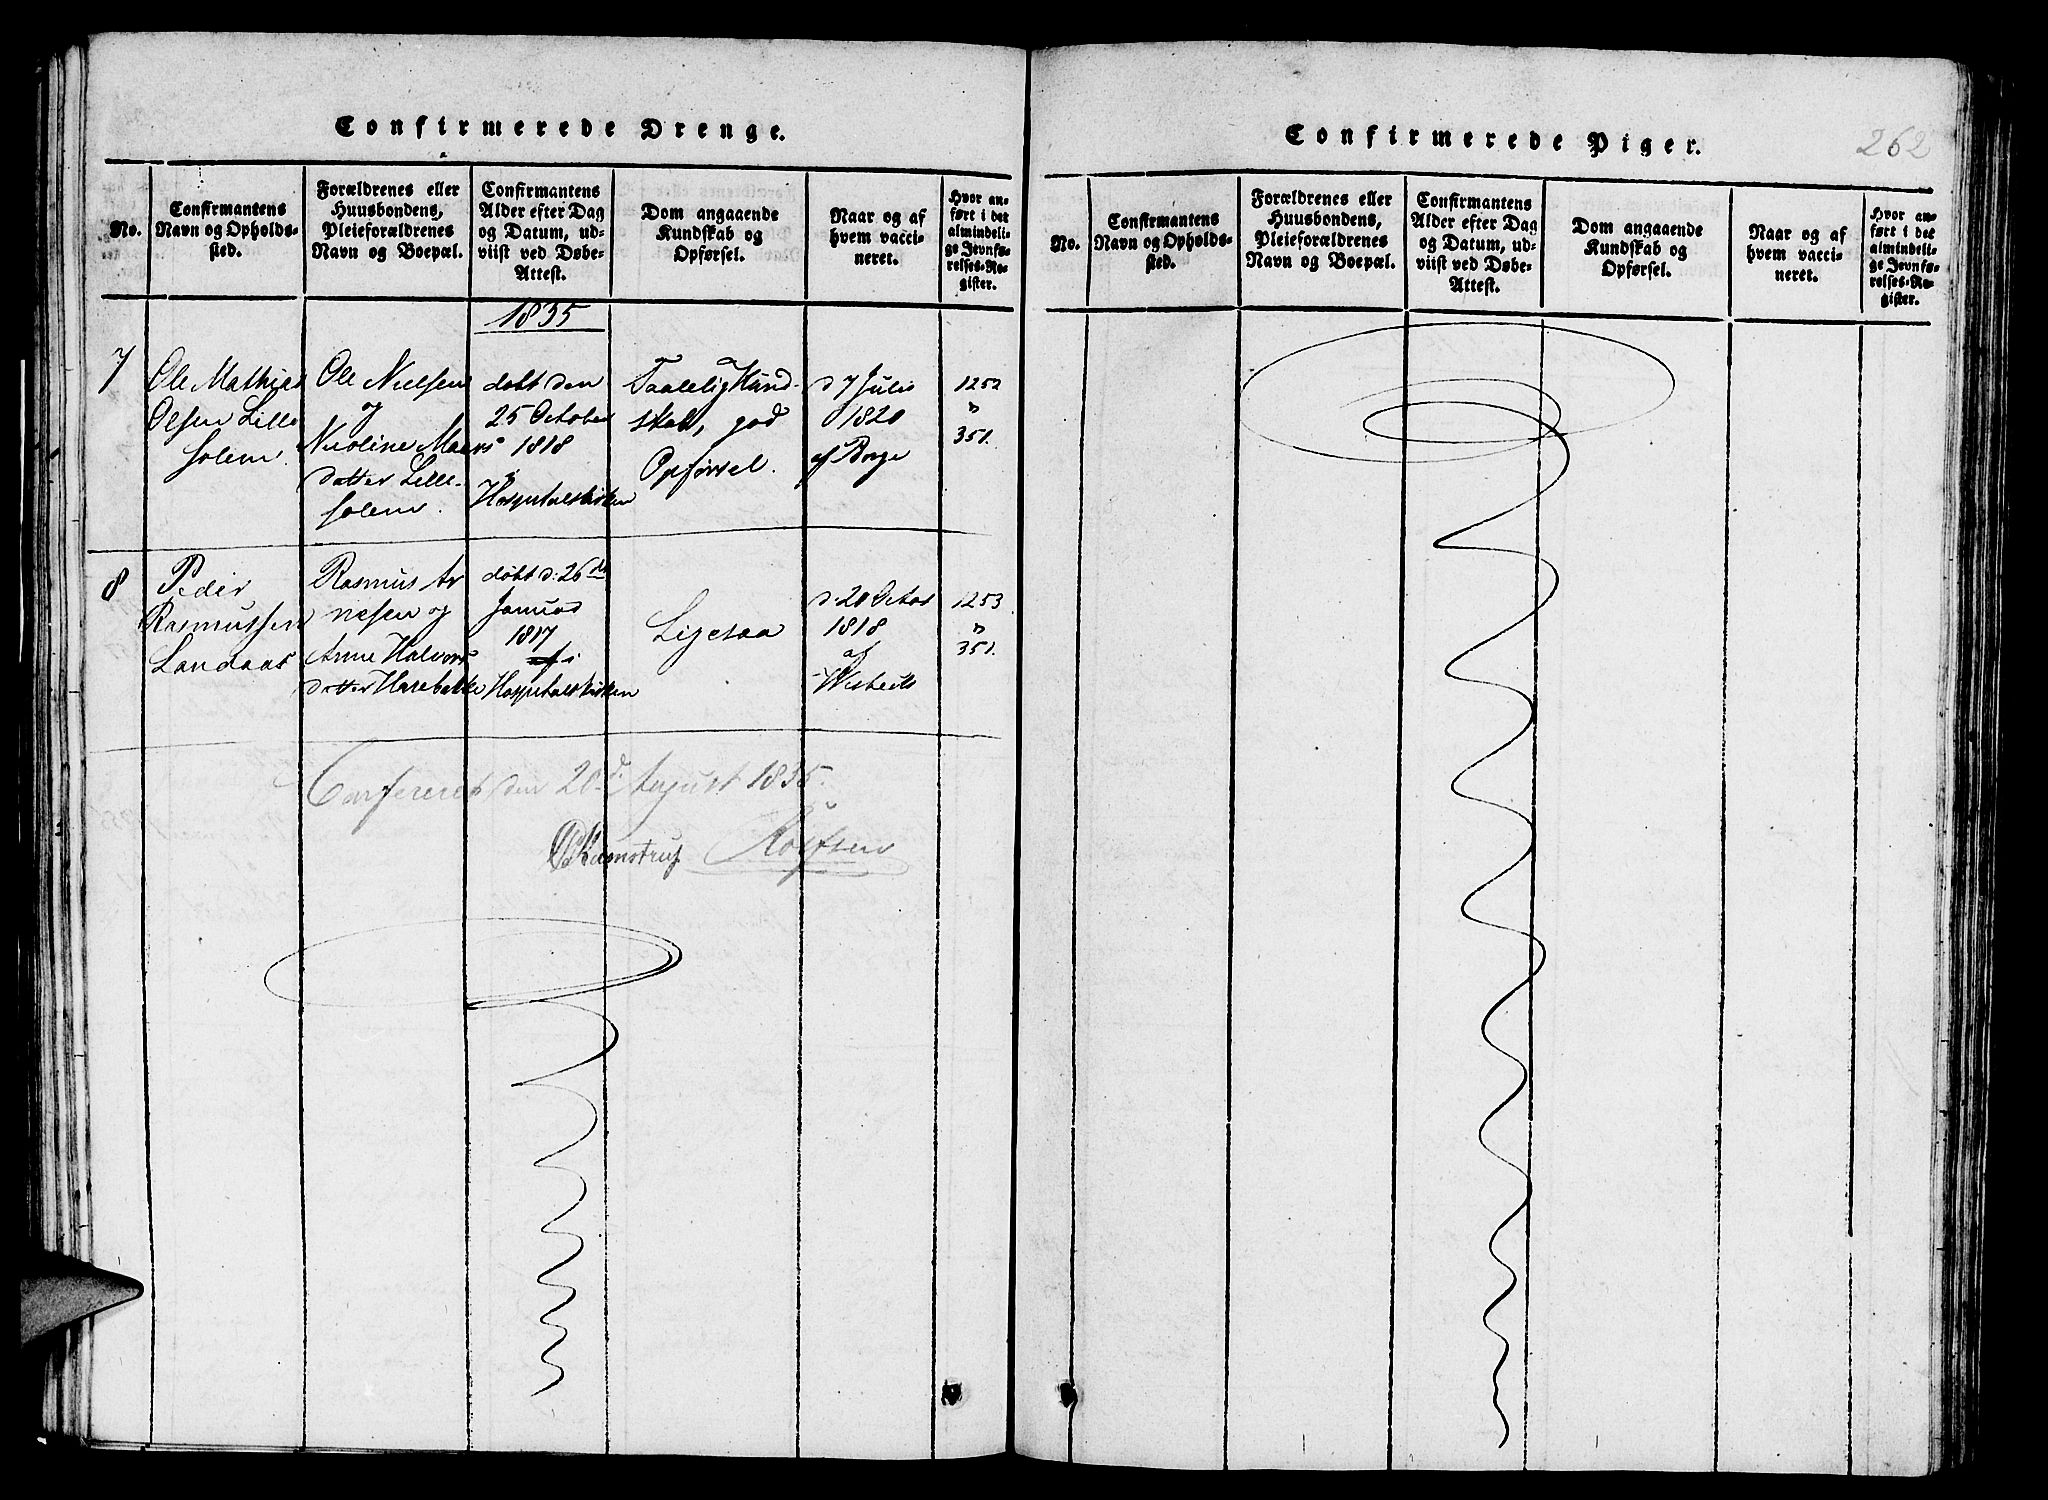 Confirmerede Drenge.
No.
Confirmantens
Navn og Opholds-
sted.
Forældrenes eller
Huusbondens,
Pleieforældrenes
Navn og Boepæl.
Confirmantens
Alder efter Dag
og Datum, ud-
viist ved Døbe-
Attest.
Dom angaaende
Kundskab og
Opførsel.
Naar og af
hvem vacci-
neret.
Hvor an-
ført i det
almindeli-
ge Jevnfø-
relses-Re-
gister.
1835
7
Ole Mathias
Olsen Lille
solem.
Ole Nielsen
og
Nicoline Maars
datter Lille-
solem.
døbt den
25 October
1818
i
Hospitalskirken
Taalelig Kund-
skab, god
Opførsel.
d 7 Julii
1820
af Borge
1252
"
351.
8
Peder
Rasmussen
Landaas
Rasmus Ar
nesen og
Anne Halvors
datter Harebakke
døbt d: 26de
Januar
1817
i
Hospitalskirken
Ligesaa
d. 20 Octob
1818
af
1253
"
351.
Confereret den 20d. August 1835.
Confirmerede Piger.
262
No.
Confirmantens
Navn og Opholds-
sted.
Forældrenes eller
Huusbondens,
Pleieforældrenes
Navn og Boepæl.
Confirmantens
Alder efter Dag
og Datum, ud-
viist ved Døbe-
Attest.
Dom angaaende
Kundskab og
Opførsel.
Naar og af
hvem vacci-
neret.
Hvor an-
ført i det
almindeli-
ge Jevnfø-
relses-Re-
gister.